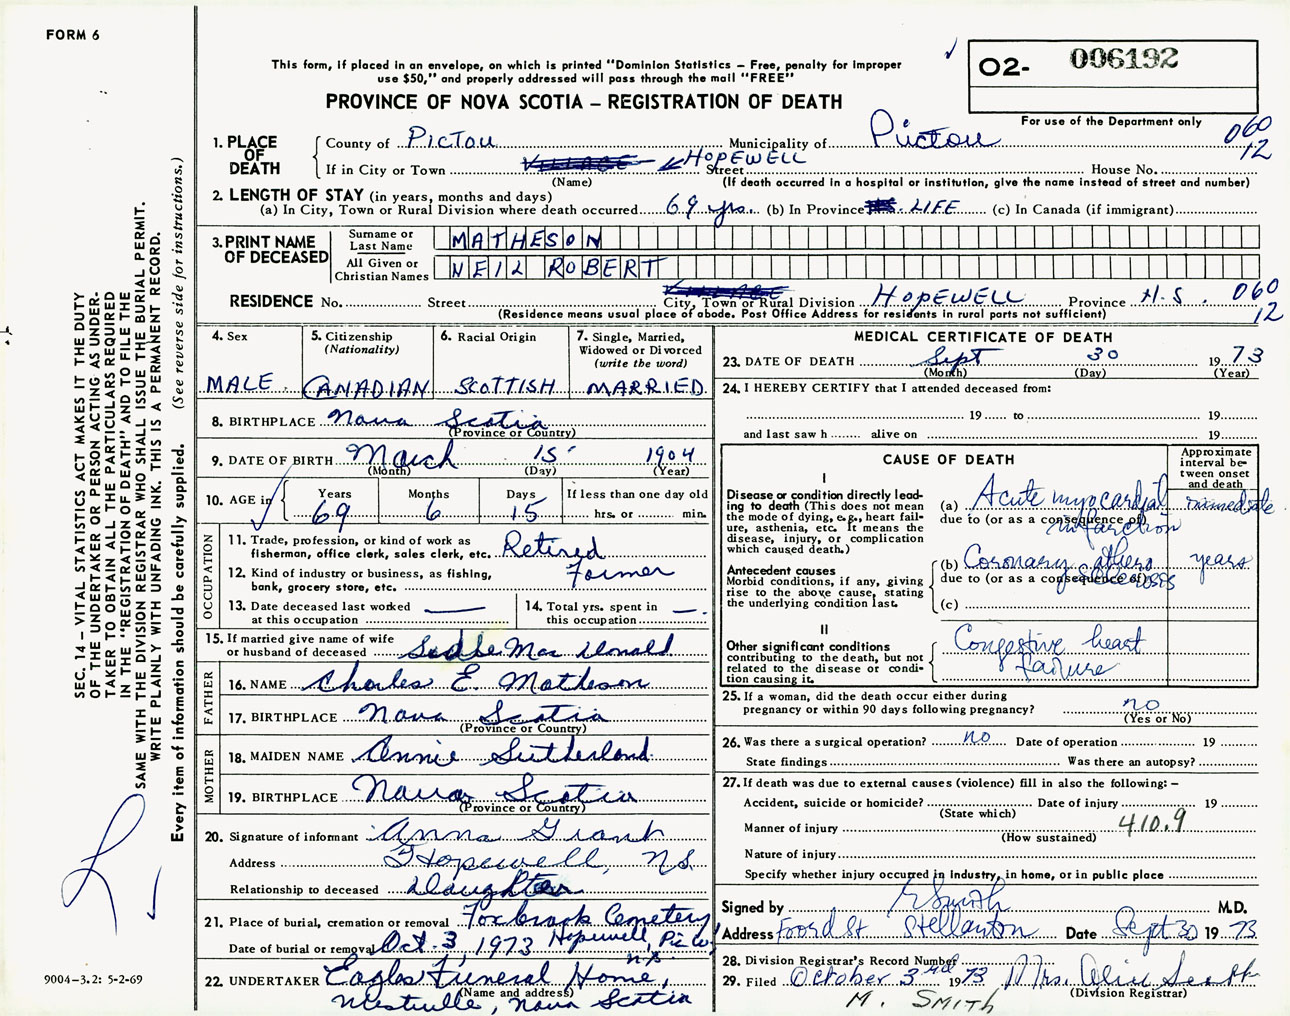 FORM 6
This form, if placed in an envelope, on which is printed "Dominion Statistics – Free, penalty for improper
use $50," and properly addressed will pass through the mail "FREE"
PROVINCE OF NOVA SCOTIA – REGISTRATION OF DEATH
O2- 006192
For use of the Department only
060
12
1. PLACE OF DEATH
County of Pictou Municipality of Pictou
If in City or Town VILLAGE HOPEWELL Street House No.
(Name) (If death occurred in a hospital or institution, give the name instead of street and number)
2. LENGTH OF STAY (in years, months and days)
(a) In City, Town or Rural Division where death occurred 69 yrs. (b) In Province LIFE (c) In Canada (if immigrant)
3. PRINT NAME OF DECEASED
Surname or Last Name MATHESON
All Given or Christian Names NEIL ROBERT
RESIDENCE No. Street City, Town or Rural Division HOPEWELL Province N.S. 060
12
(Residence means usual place of abode. Post Office Address for residents in rural parts not sufficient)
4. Sex MALE
5. Citizenship (Nationality) CANADIAN
6. Racial Origin SCOTTISH
7. Single, Married, Widowed or Divorced (write the word) MARRIED
8. BIRTHPLACE Nova Scotia
(Province or Country)
9. DATE OF BIRTH March 15 1904
(Month) (Day) (Year)
10. AGE in Years 69 Months 6 Days 15 If less than one day old hrs. or min.
OCCUPATION
11. Trade, profession, or kind of work as fisherman, office clerk, sales clerk, etc. Retired
12. Kind of industry or business, as fishing, bank, grocery store, etc. Farmer
13. Date deceased last worked at this occupation —
14. Total yrs. spent in this occupation —
15. If married give name of wife or husband of deceased Mac Donald
FATHER
16. NAME Charles E. Matheson
17. BIRTHPLACE Nova Scotia
(Province or Country)
MOTHER
18. MAIDEN NAME Annie Sutherland
19. BIRTHPLACE Nova Scotia
(Province or Country)
20. Signature of informant Anna Grant
Address Hopewell, NS
Relationship to deceased Daughter
21. Place of burial, cremation or removal Foxbrook Cemetery
Date of burial or removal Oct. 3, 1973 Hopewell, Pic Co
N.S.
22. UNDERTAKER Eagles Funeral Home,
(Name and address)
Westville, Nova Scotia
MEDICAL CERTIFICATE OF DEATH
23. DATE OF DEATH Sept 30 1973
(Month) (Day) (Year)
24. I HEREBY CERTIFY that I attended deceased from:
19 to 19
and last saw h alive on 19
CAUSE OF DEATH
Approximate interval between onset and death
I
Disease or condition directly leading to death (This does not mean the mode of dying, e.g., heart failure, asthenia, etc. It means the disease, injury, or complication which caused death.)
(a) Acute myocardial infarction immediate
due to (or as a consequence of)
Antecedent causes
Morbid conditions, if any, giving rise to the above cause, stating the underlying condition last.
(b) Coronary atherosclerosis years
due to (or as a consequence of)
(c)
II
Other significant conditions
contributing to the death, but not related to the disease or condition causing it.
Congestive heart failure
25. If a woman, did the death occur either during pregnancy or within 90 days following pregnancy? no
(Yes or No)
26. Was there a surgical operation? no Date of operation 19
State findings Was there an autopsy?
27. If death was due to external causes (violence) fill in also the following: –
Accident, suicide or homicide? Date of injury 19
(State which)
Manner of injury 410.9
(How sustained)
Nature of injury
Specify whether injury occurred in industry, in home, or in public place
Signed by Smith M.D.
Address Foord St Stellarton Date Sept 30 1973
28. Division Registrar's Record Number
29. Filed October 3rd 1973 Mrs.
(Division Registrar)
M. SMITH
SEC. 14 – VITAL STATISTICS ACT MAKES IT THE DUTY
OF THE UNDERTAKER OR PERSON ACTING AS UNDER-
TAKER TO OBTAIN ALL THE PARTICULARS REQUIRED
IN THE "REGISTRATION OF DEATH" AND TO FILE THE
SAME WITH THE DIVISION REGISTRAR WHO SHALL ISSUE THE BURIAL PERMIT.
WRITE PLAINLY WITH UNFADING INK. THIS IS A PERMANENT RECORD.
Every item of information should be carefully supplied. (See reverse side for instructions.)
9004-3.2: 5-2-69